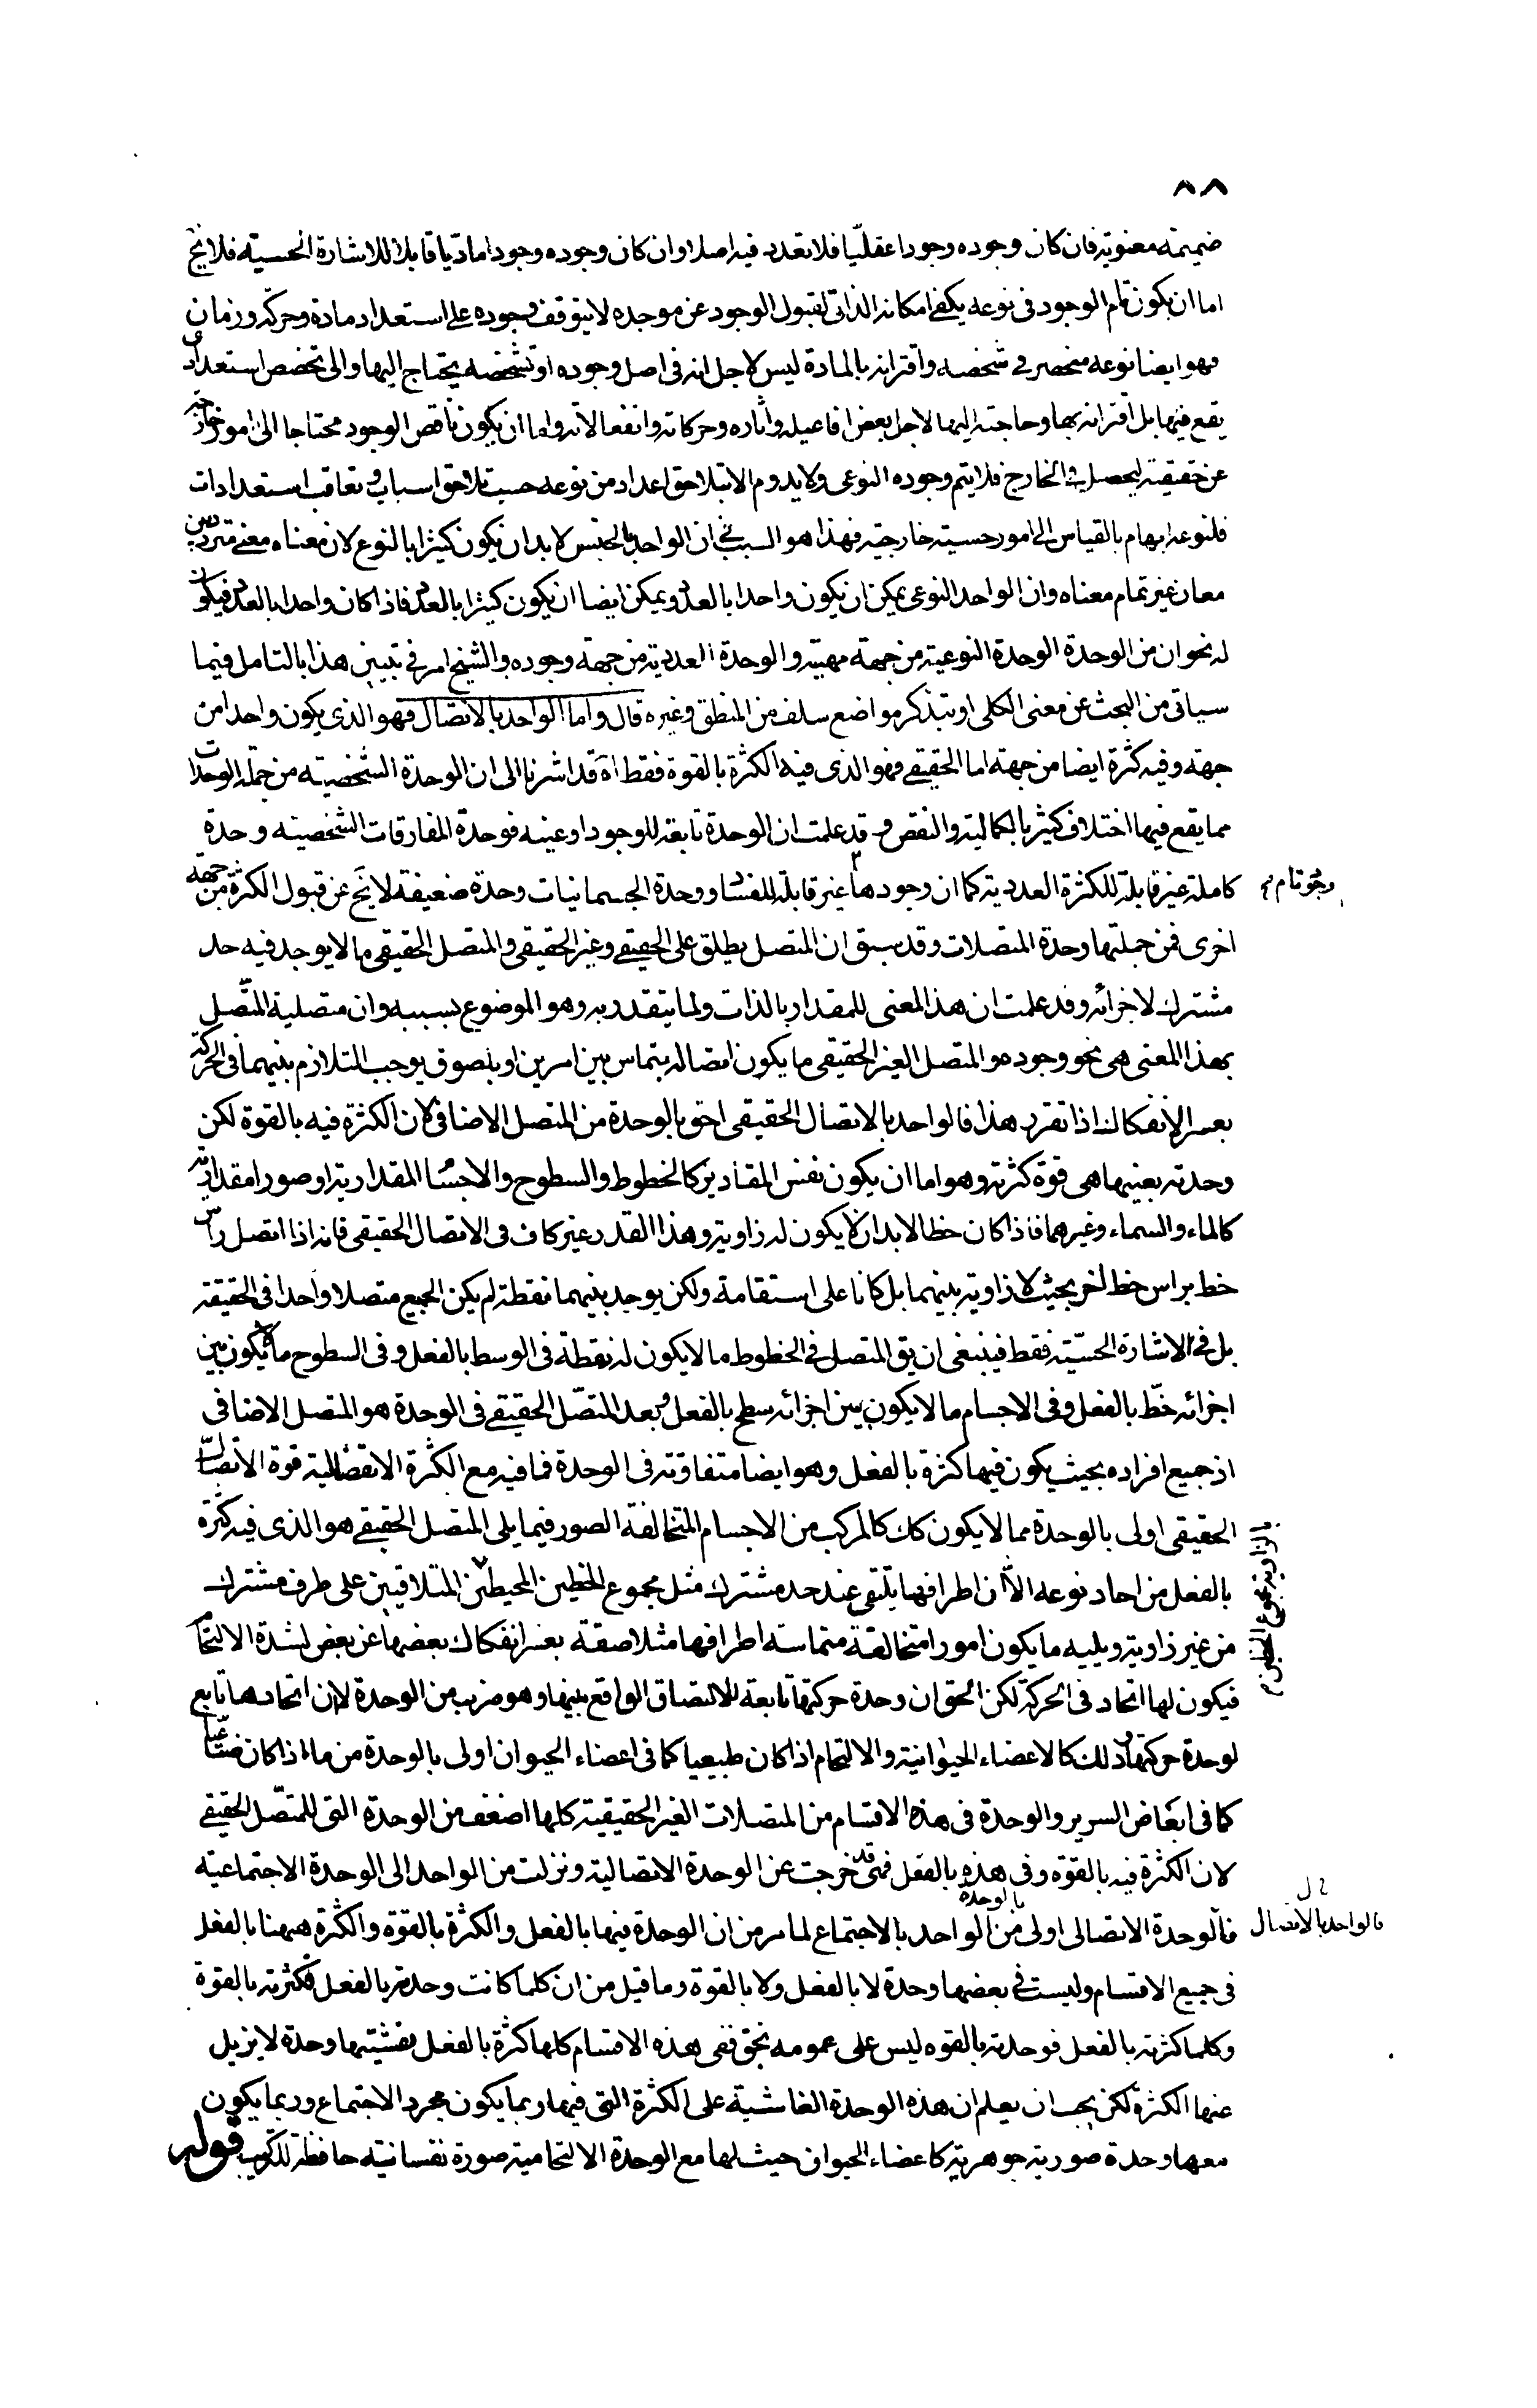 ٨٨
ضميمة معنوية فان كان وجوده وجودا عقليّا فلا تعدد فيه اصلا وان كان وجوده وجودا ماديّا قابلا للاشارة الحسية فلا يخ
اما ان يكون تام الوجود فى نوعه يكفى امكانه الذاتى لقبول الوجود عن موجده لا يتوقف وجوده على استعداد مادة وحركة وزمان
فهو ايضا نوعه منحصر فى شخصه واقترانه بالمادة ليس لاجل انه فى اصل وجوده او تشخصه يحتاج اليها والى تخصص استعدادى
يقع فيها بل اقترانه بها وحاجته اليها لاجل بعض افاعيله واثاره وحركاته وانفعالاته واما ان يكون ناقص الوجود محتاجا الى امور خارجة
عن حقيقته ليحصل فى الخارج فلا يتم وجوده النوعى ولا يدوم الا بتلاحق اعداد من نوعه حسب تلاحق اسباب وتعاقب استعدادات
فلنوعه ابهام بالقياس الى امور حسية خارجية فهذا هو السبب فى ان الواحد بالجنس لا بد ان يكون كثيرا بالنوع لان معناه معنى متردد بين
معان غير تمام معناه وان الواحد النوعى يمكن ان يكون واحدا بالعدد ويمكن ايضا ان يكون كثيرا بالعدد فاذا كان واحدا بالعدد فيكون
له نحوان من الوحدة الوحدة النوعية من جهة مهيته والوحدة العددية من جهة وجوده والشيخ امر فى تبيين هذا بالتامل فيما
سياتى من البحث عن معنى الكلى او بتذكر مواضع سلف من المنطق وغيره قال واما الواحد بالاتصال فهو الذى يكون واحدا من
جهة وفيه كثرة ايضا من جهة اما الحقيقى فهو الذى فيه الكثرة بالقوة فقط اه قد اشرنا الى ان الوحدة الشخصية من جملة الوحدات
مما يقع فيها اختلاف كثير بالكمالية والنقص و قد علمت ان الوحدة تابعة للوجود او عينه فوحدة المفارقات الشخصية وحدة
كاملة غير قابلة للكثرة العددية كما ان وجودها غير قابلة للفساد ووحدة الجسمانيات وحدة ضعيفة لا يخ عن قبول الكثرة من جهة
اخرى فمن جملتها وحدة المتصلات وقد سبق ان المتصل يطلق على الحقيقى وغير الحقيقى والمتصل الحقيقى ما لا يوجد فيه حد
مشترك لاجزائه وقد علمت ان هذا المعنى للمقدار بالذات ولما يتقدر به وهو الموضوع بسببه وان متصلية المتّصل
بهذا المعنى هى نحو وجوده هو المتصل الغير الحقيقى ما يكون اتصاله بتماس بين امرين او بلصوق يوجب التلازم بينهما فى الحركة
بعسر الانفكاك اذا تقرر هذا فالواحد بالاتصال الحقيقى احق بالوحدة من المتصل الاضافى لان الكثرة فيه بالقوة لكن
وحدته بعينها هى قوة كثرته وهو اما ان يكون نفس المقادير كالخطوط والسطوح والاجسام المقدارية او صورا مقدارية
كالماء والسماء وغيرهما فاذا كان خطا لا بد ان لا يكون له زاوية وهذا القدر غير كاف فى الاتصال الحقيقى فانه اذا اتصل راس
خط براس خط اخر بحيث لا زاوية بينهما بل كانا على استقامة ولكن يوجد بينهما نقطة لم يكن الجميع متصلا واحدا فى الحقيقة
بل فى الاشارة الحسّية فقط فينبغى ان يق المتصل فى الخطوط ما لا يكون له نقطة فى الوسط بالفعل وفى السطوح ما لا يكون بين
اجزائه خطّ بالفعل وفى الاجسام ما لا يكون بين اجزائه سطح بالفعل وبعد المتصّل الحقيقى فى الوحدة هو المتصل الاضافى
اذ جميع افراده بحيث يكون فيها كثرة بالفعل وهو ايضا متفاوتة فى الوحدة فما فيه مع الكثرة الانفصالية قوة الاتصال
الحقيقى اولى بالوحدة مما لا يكون كك كالمركب من الاجسام المتخالفة الصور فيما يلى المتصل الحقيقى هو الذى فيه كثرة
بالفعل من احاد نوعه الا ان اطرافها يلتقى عند حد مشترك مثل مجموع الخطين المحيطين المتلاقيين على طرف مشترك
من غير زاوية ويليه ما يكون امورا متخالفة متماسة اطرافها متلاصقة بعسر انفكاك بعضها عن بعض لشدة الالتحام
فيكون لها اتحاد فى الحركة لكن الحق ان وحدة حركتها تابعة للالتصاق الواقع بينها وهو ضرب من الوحدة لان اتحادها تابع
لوحدة حركتها وذلك كالاعضاء الحيوانية والالتحام اذا كان طبيعيا كما فى اعضاء الحيوان اولى بالوحدة من ما اذا كان صناعيا
كما فى ابعاض السرير والوحدة فى هذه الاقسام من المتصلات الغير الحقيقية كلها اضعف من الوحدة التى للمتصّل الحقيقى
لان الكثرة فيه بالقوة وفى هذه بالفعل فمتى قد خرجت عن الوحدة الاتصالية ونزلت من الواحد الى الوحدة الاجتماعية
فالوحدة الاتصالى اولى بالوحدة من الواحد بالاجتماع لما مر من ان الوحدة فيها بالفعل والكثرة بالقوة والكثرة ههنا بالفعل
فى جميع الاقسام وليست فى بعضها وحدة لا بالفعل ولا بالقوة وما قيل من ان كلما كانت وحدته بالفعل فكثرته بالقوة
وكلما كثرته بالفعل فوحدته بالقوه ليس على عمومه بحق ففى هذه الاقسام كلها كثرة بالفعل يغشيتها وحدة لا يزيل
عنها الكثرة لكن يجب ان يعلم ان هذه الوحدة الغاشية على الكثرة التى فيها ربما يكون مجرد الاجتماع وربما يكون
معها وحدة صورية جوهرية كاعضاء الحيوان حيث لها مع الوحدة الالتحامية صورة نفسانية حافظة للتركيب قوله
فالواحد بالاتصال